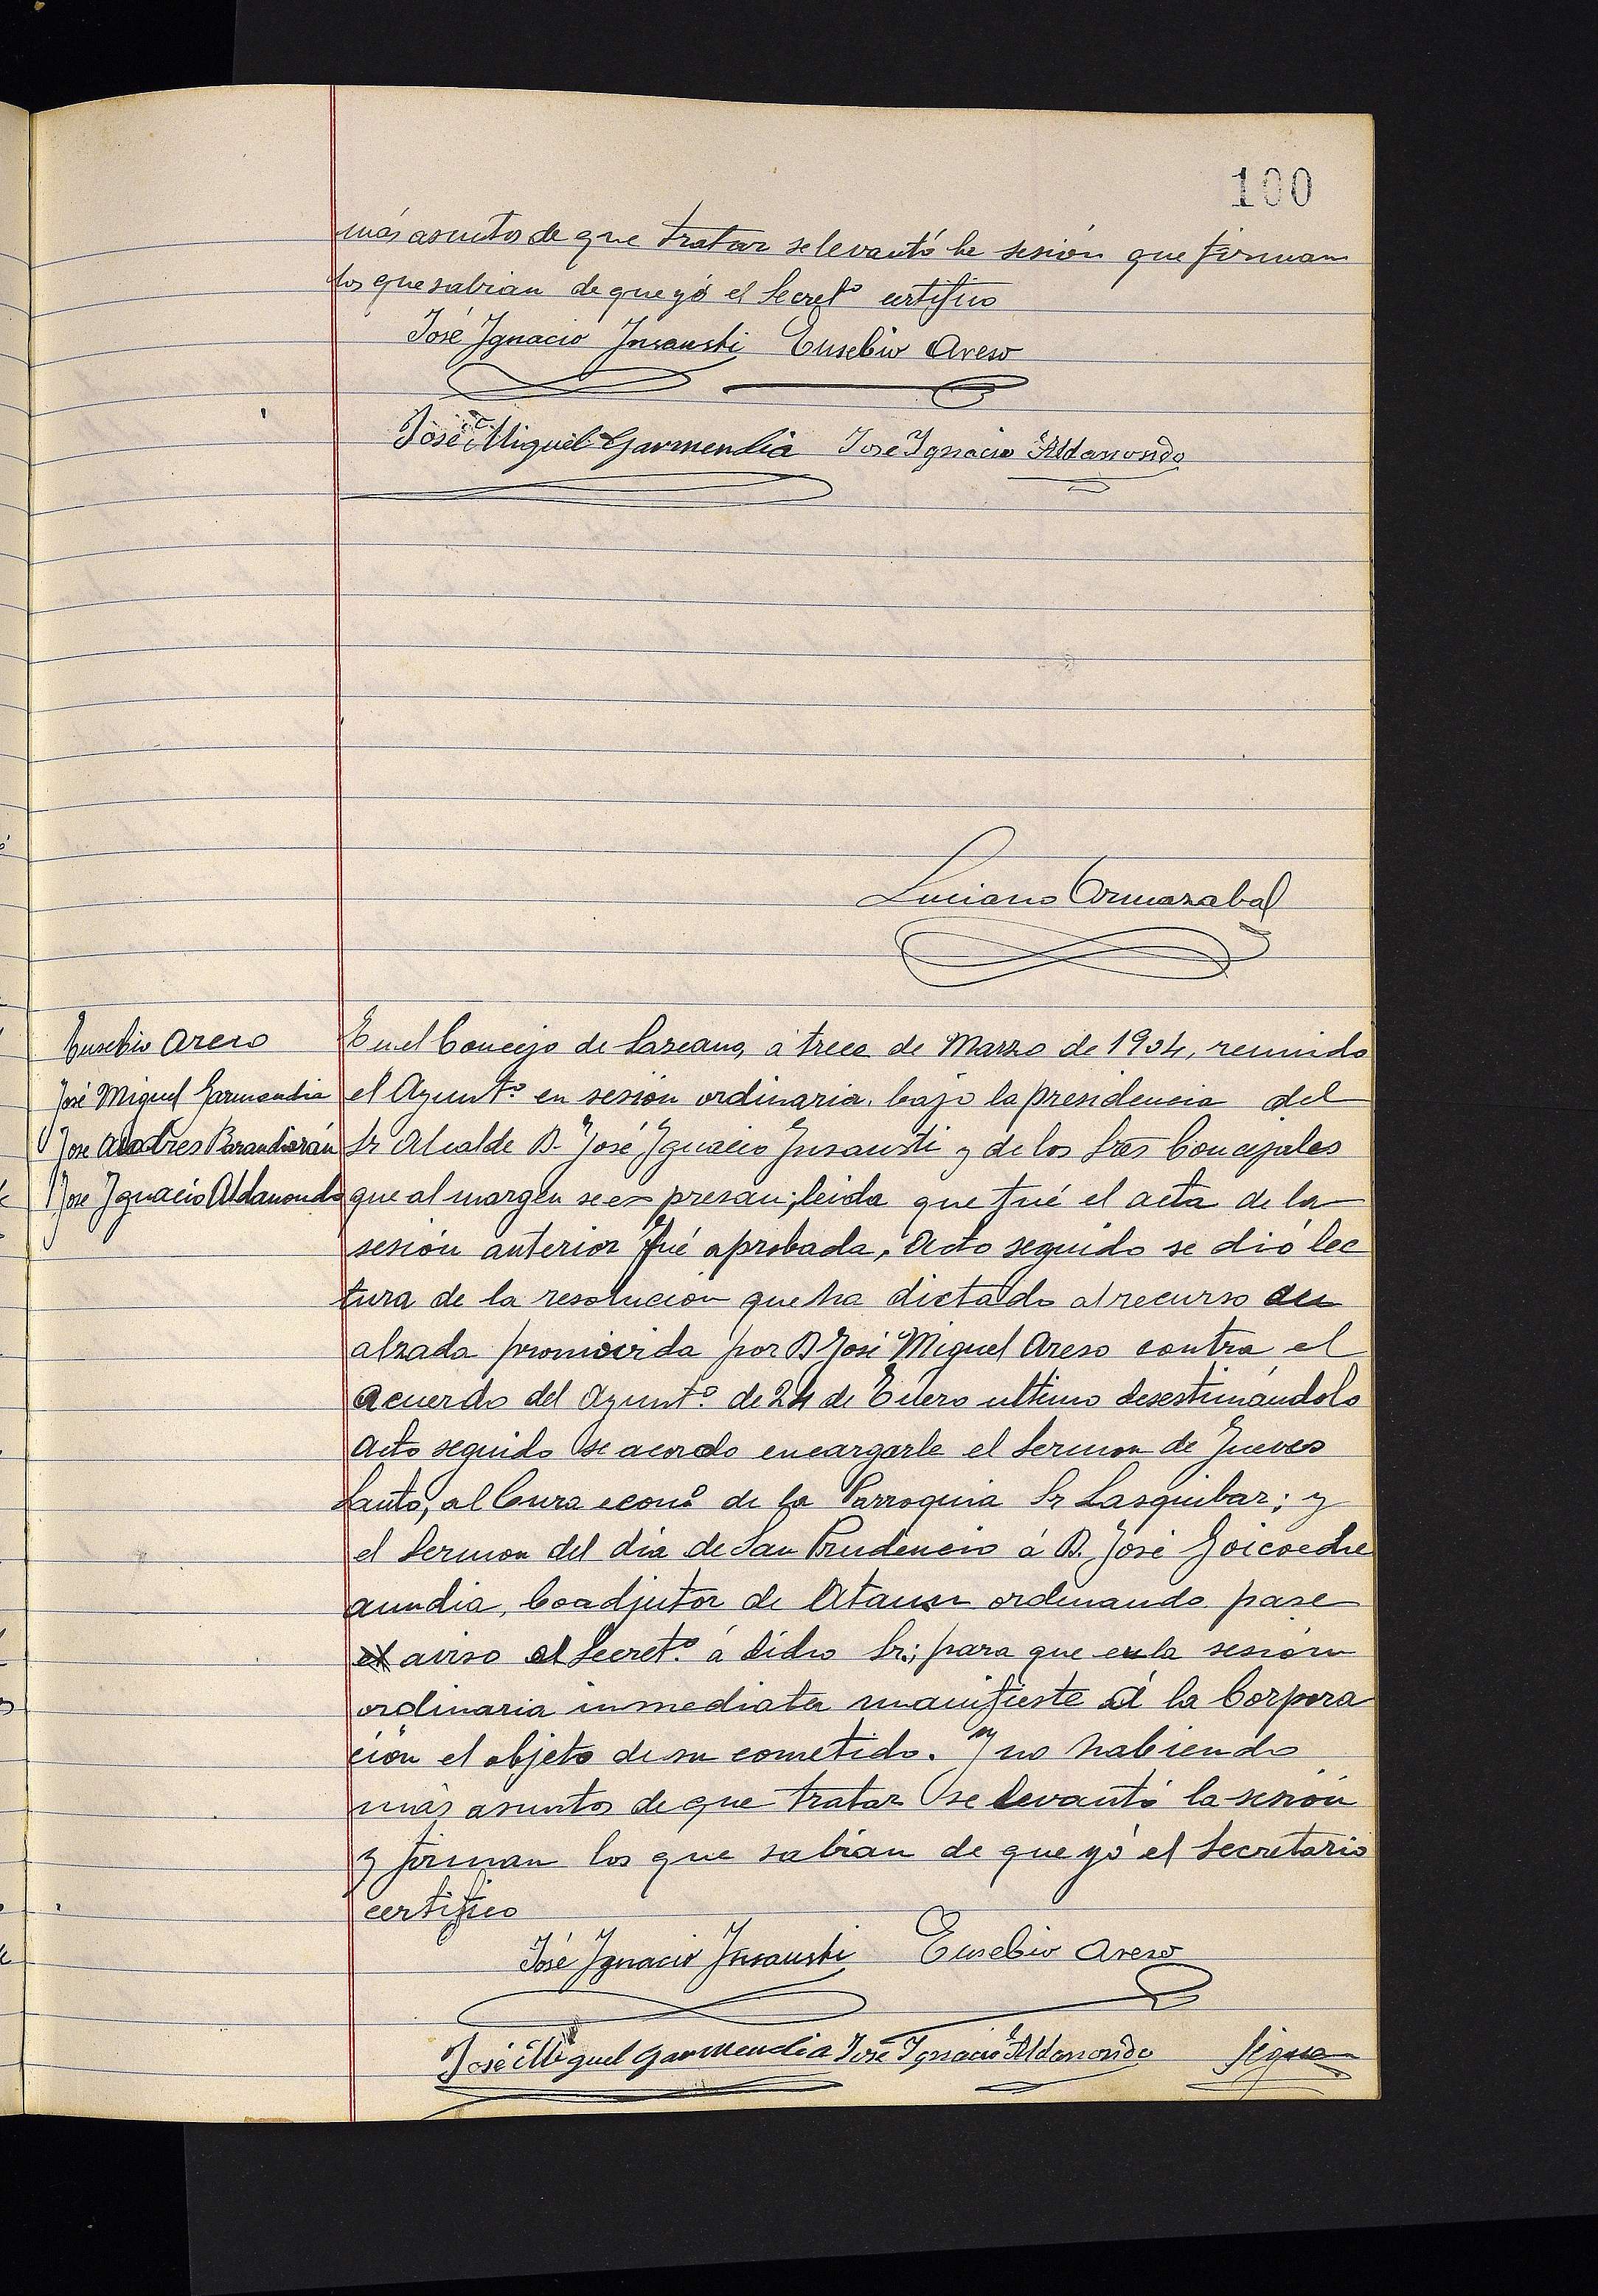 100
más asuntos de que tratar se levantó la sesión que firman
los que sabian de que yó el Secretº certifico
José Ygnacio Ynsausti Eusebio Areso
José Miguel Garmendia José Ygnacio Aldanondo
Luciano Ormazabal
Eusebio Areso
José Miguel Garmendia
José Andres Barandiarán
José Ygnacio Aldanondo
En el Concejo de Lazcano, á trece de Marzo de 1904, reunido
el Ayuntº en sesion ordinaria, bajo la presidencia del
Sr Alcalde D. José Ygnacio Ynsausti y de los Sres Concejales
que al margen se expresan; leida que fué el acta de la
sesión anterior fué aprobada. Acto seguido se dió lec
tura de la resolucion que ha dictado al recurso de
alzada promovida por D José Miguel Areso contra el
acuerdo del Ayuntº de 24 de Enero ultimo desestimándolo
Acto seguido se acordo encargarle el Sermon de Jueves
Santo, al Cura econº de la Parroquia Sr Lasquibar; y
el Sermon del dia de San Prudencio á D. José Goicoeche
aundia, Coadjutor de Ataun ordenando pase
el aviso al Secretº á dicho Sr; para que en la sesión
ordinaria inmediata manifieste á la Corpora
ción el objeto de su cometido. Y no habiendo
más asuntos de que tratar se levantó la sesión
y firman los que sabian de que yó el Secretario
certifico
José Ygnacio Ynsausti Eusebio Areso
José Miguel Garmendia José Ygnacio Aldanondo Sigue